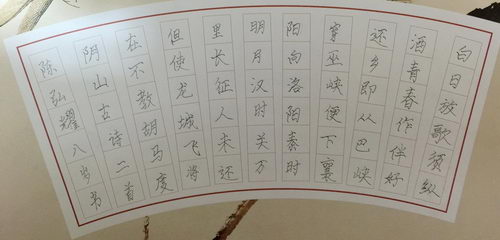 白日放歌须纵
酒青春作伴好
还乡即从巴峡
穿巫峡便下襄
阳向洛阳秦时
明月汉时关万
里长征人未还
但使龙城飞将
在不教胡马度
阴山古诗二首
陈弘耀八岁书